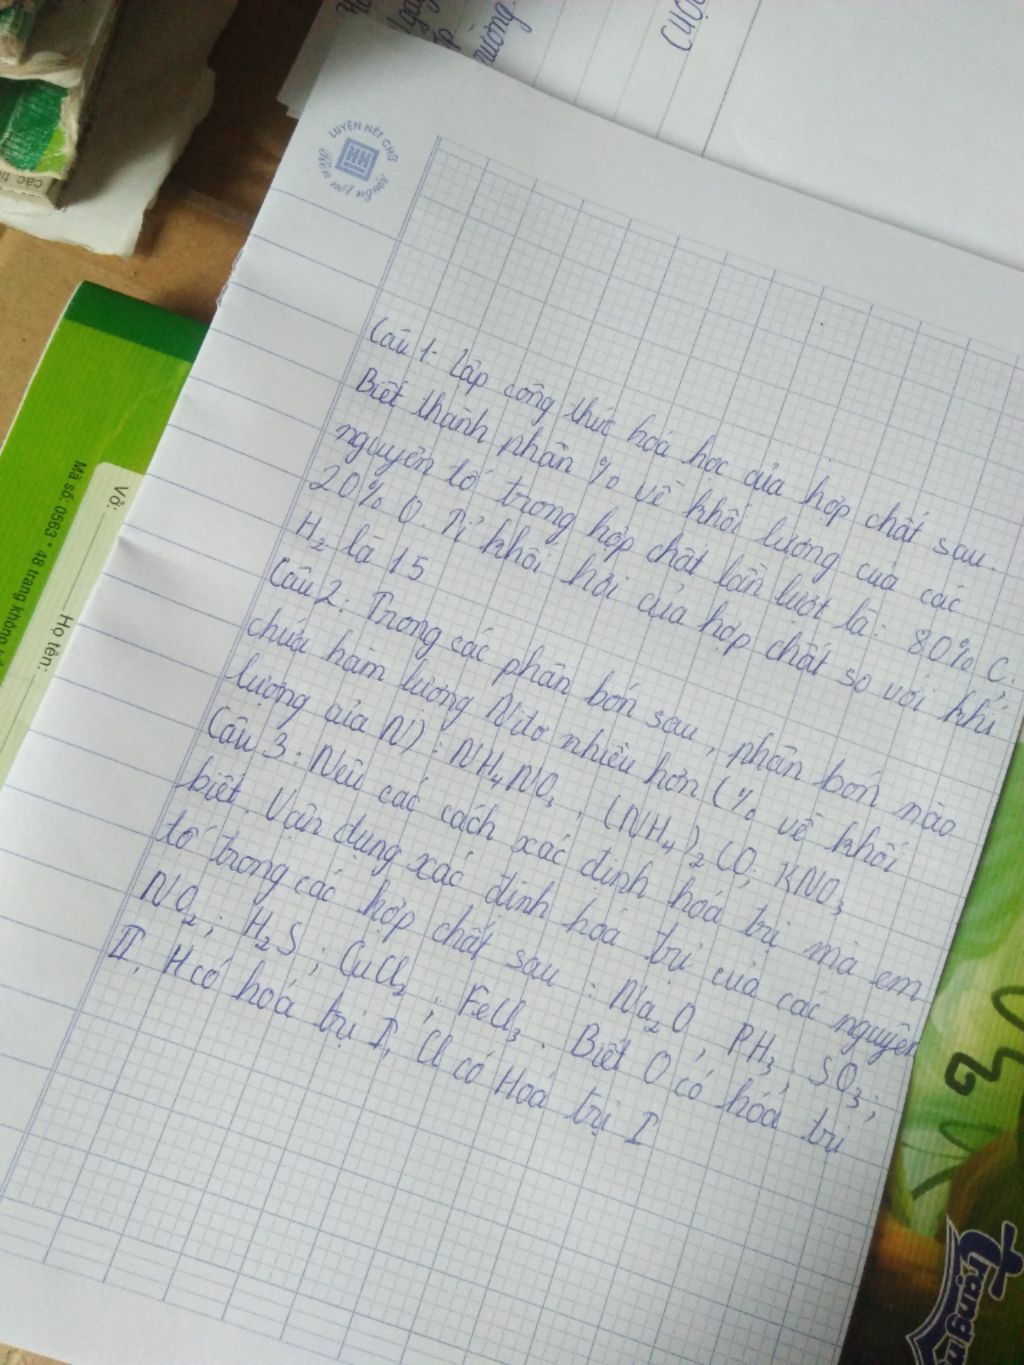 CUỘ
LUYỆN NÉT CHỮ
HH
Rèn nết người
Câu 1. Lập công thức hoá học của hợp chất sau.
Biết thành phần % về khối lượng của các
nguyên tố trong hợp chất lần lượt là: 80% C.
20% O. Tỉ khối hơi của hợp chất so với khí
H₂ là 15
Câu 2: Trong các phân bón sau, phân bón nào
chứa hàm lượng Nitơ nhiều hơn (% về khối
lượng của N): NH₄NO₃, (NH₄)₂CO; KNO₃
Câu 3: Nêu các cách xác định hoá trị mà em
biết. Vận dụng xác định hóa trị của các nguyên
tố trong các hợp chất sau: Na₂O, PH₃; SO₃;
NO₂; H₂S; CuCl₂, FeCl₃. Biết O có hóa trị
II, H có hoá trị I, Cl có Hoá trị I
Vở:
Họ tên:
Mã số: 0563 • 48 trang không